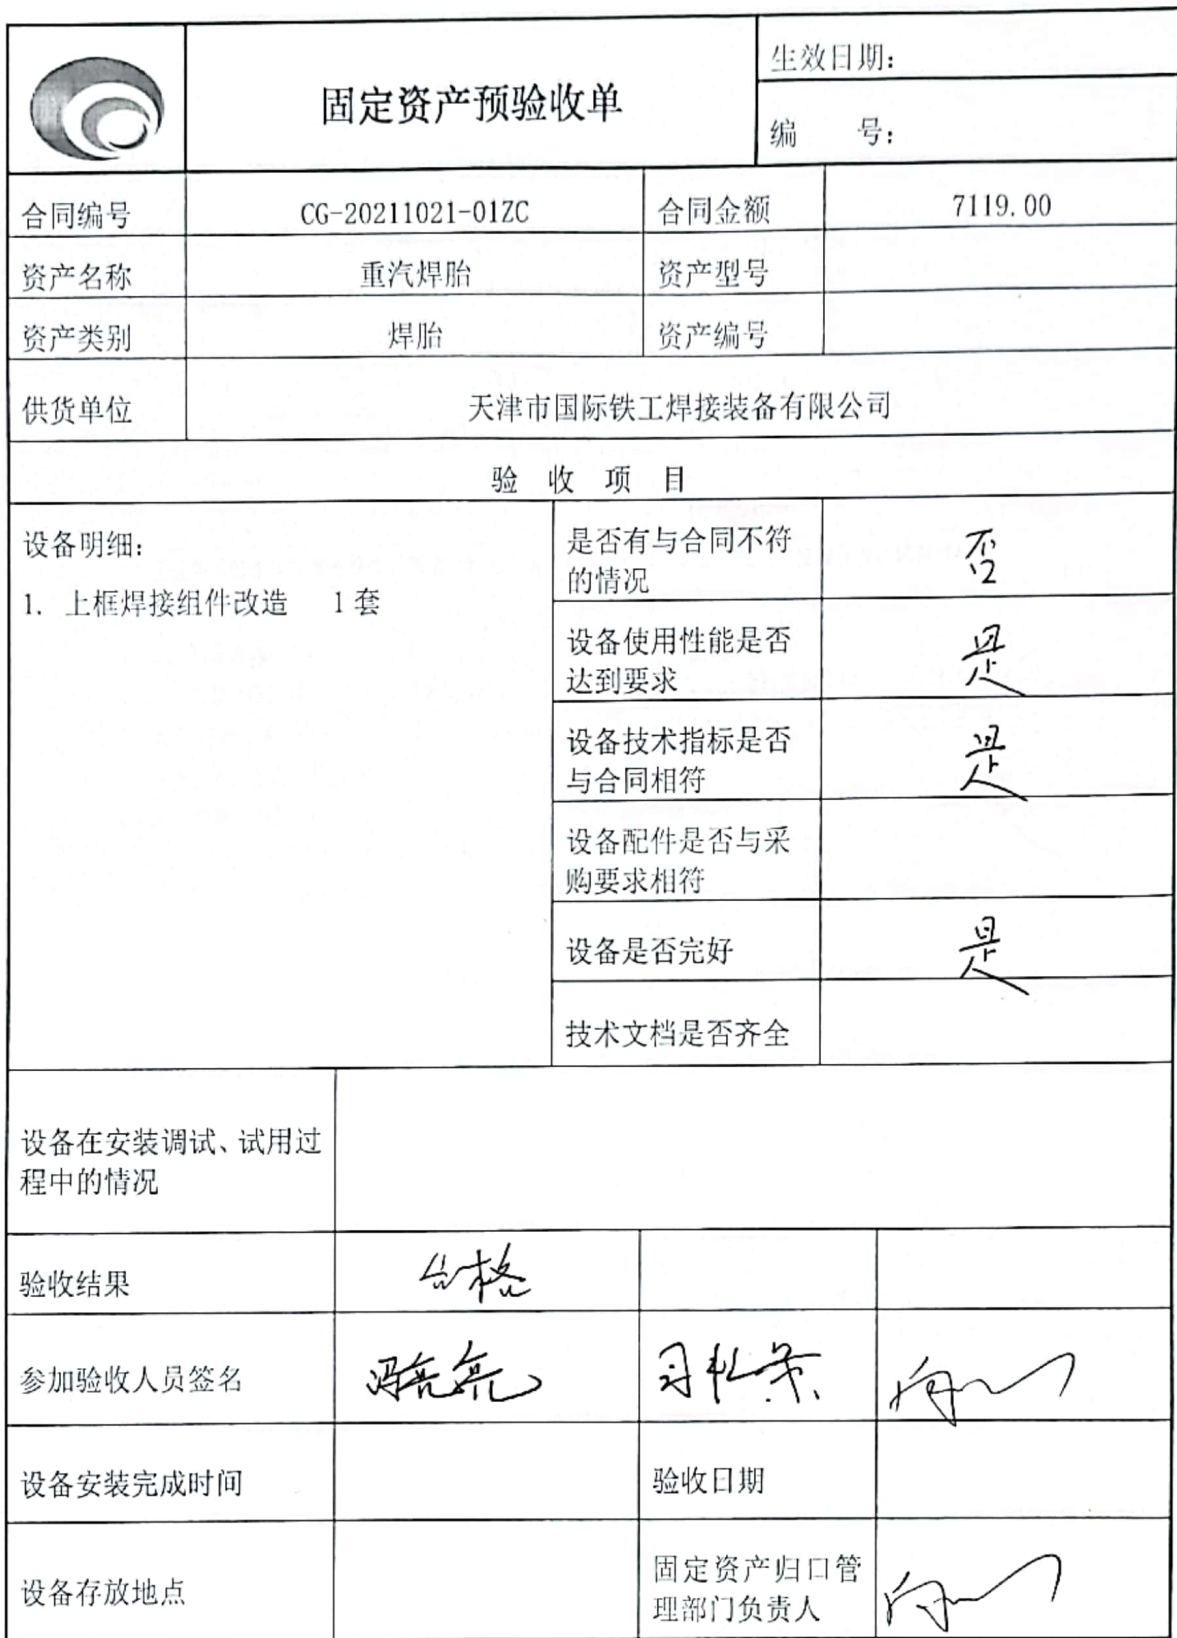 固定资产预验收单
生效日期:
编 号:
合同编号 CG-20211021-01ZC 合同金额 7119.00
资产名称 重汽焊胎 资产型号
资产类别 焊胎 资产编号
供货单位 天津市国际铁工焊接装备有限公司
验 收 项 目
设备明细:
1. 上框焊接组件改造 1套
是否有与合同不符
的情况
否
设备使用性能是否
达到要求
是
设备技术指标是否
与合同相符
是
设备配件是否与采
购要求相符
设备是否完好 是
技术文档是否齐全
设备在安装调试、试用过
程中的情况
验收结果 合格
参加验收人员签名 冯亮亮
设备安装完成时间 验收日期
设备存放地点
固定资产归口管
理部门负责人